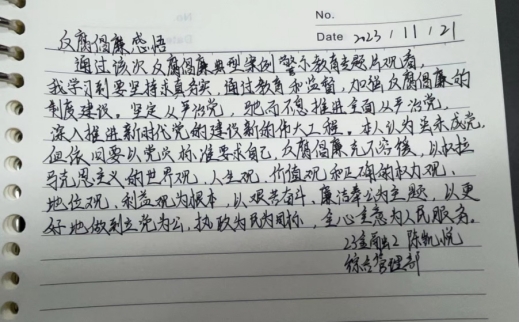 No.
Date 2023/11/21
反腐倡廉感悟
通过该次反腐倡廉典型案例警示教育专题片观看,
我学习到要坚持求真务实,通过教育和监督,加强反腐倡廉的
制度建设。坚定从严治党,驰而不息推进全面从严治党,
深入推进新时代党的建设新的伟大工程。本人认为虽未成党,
但依旧要以党员标准要求自己,反腐倡廉充不容缓,以
马克思主义的世界观,人生观,价值观和正确的权力观、
地位观,利益观为根本,以艰苦奋斗、廉洁奉公为主题,以更
好地做到立党为公,执政为民为目标,全心全意为人民服务。
23金融2 陈凯悦
综合管理部